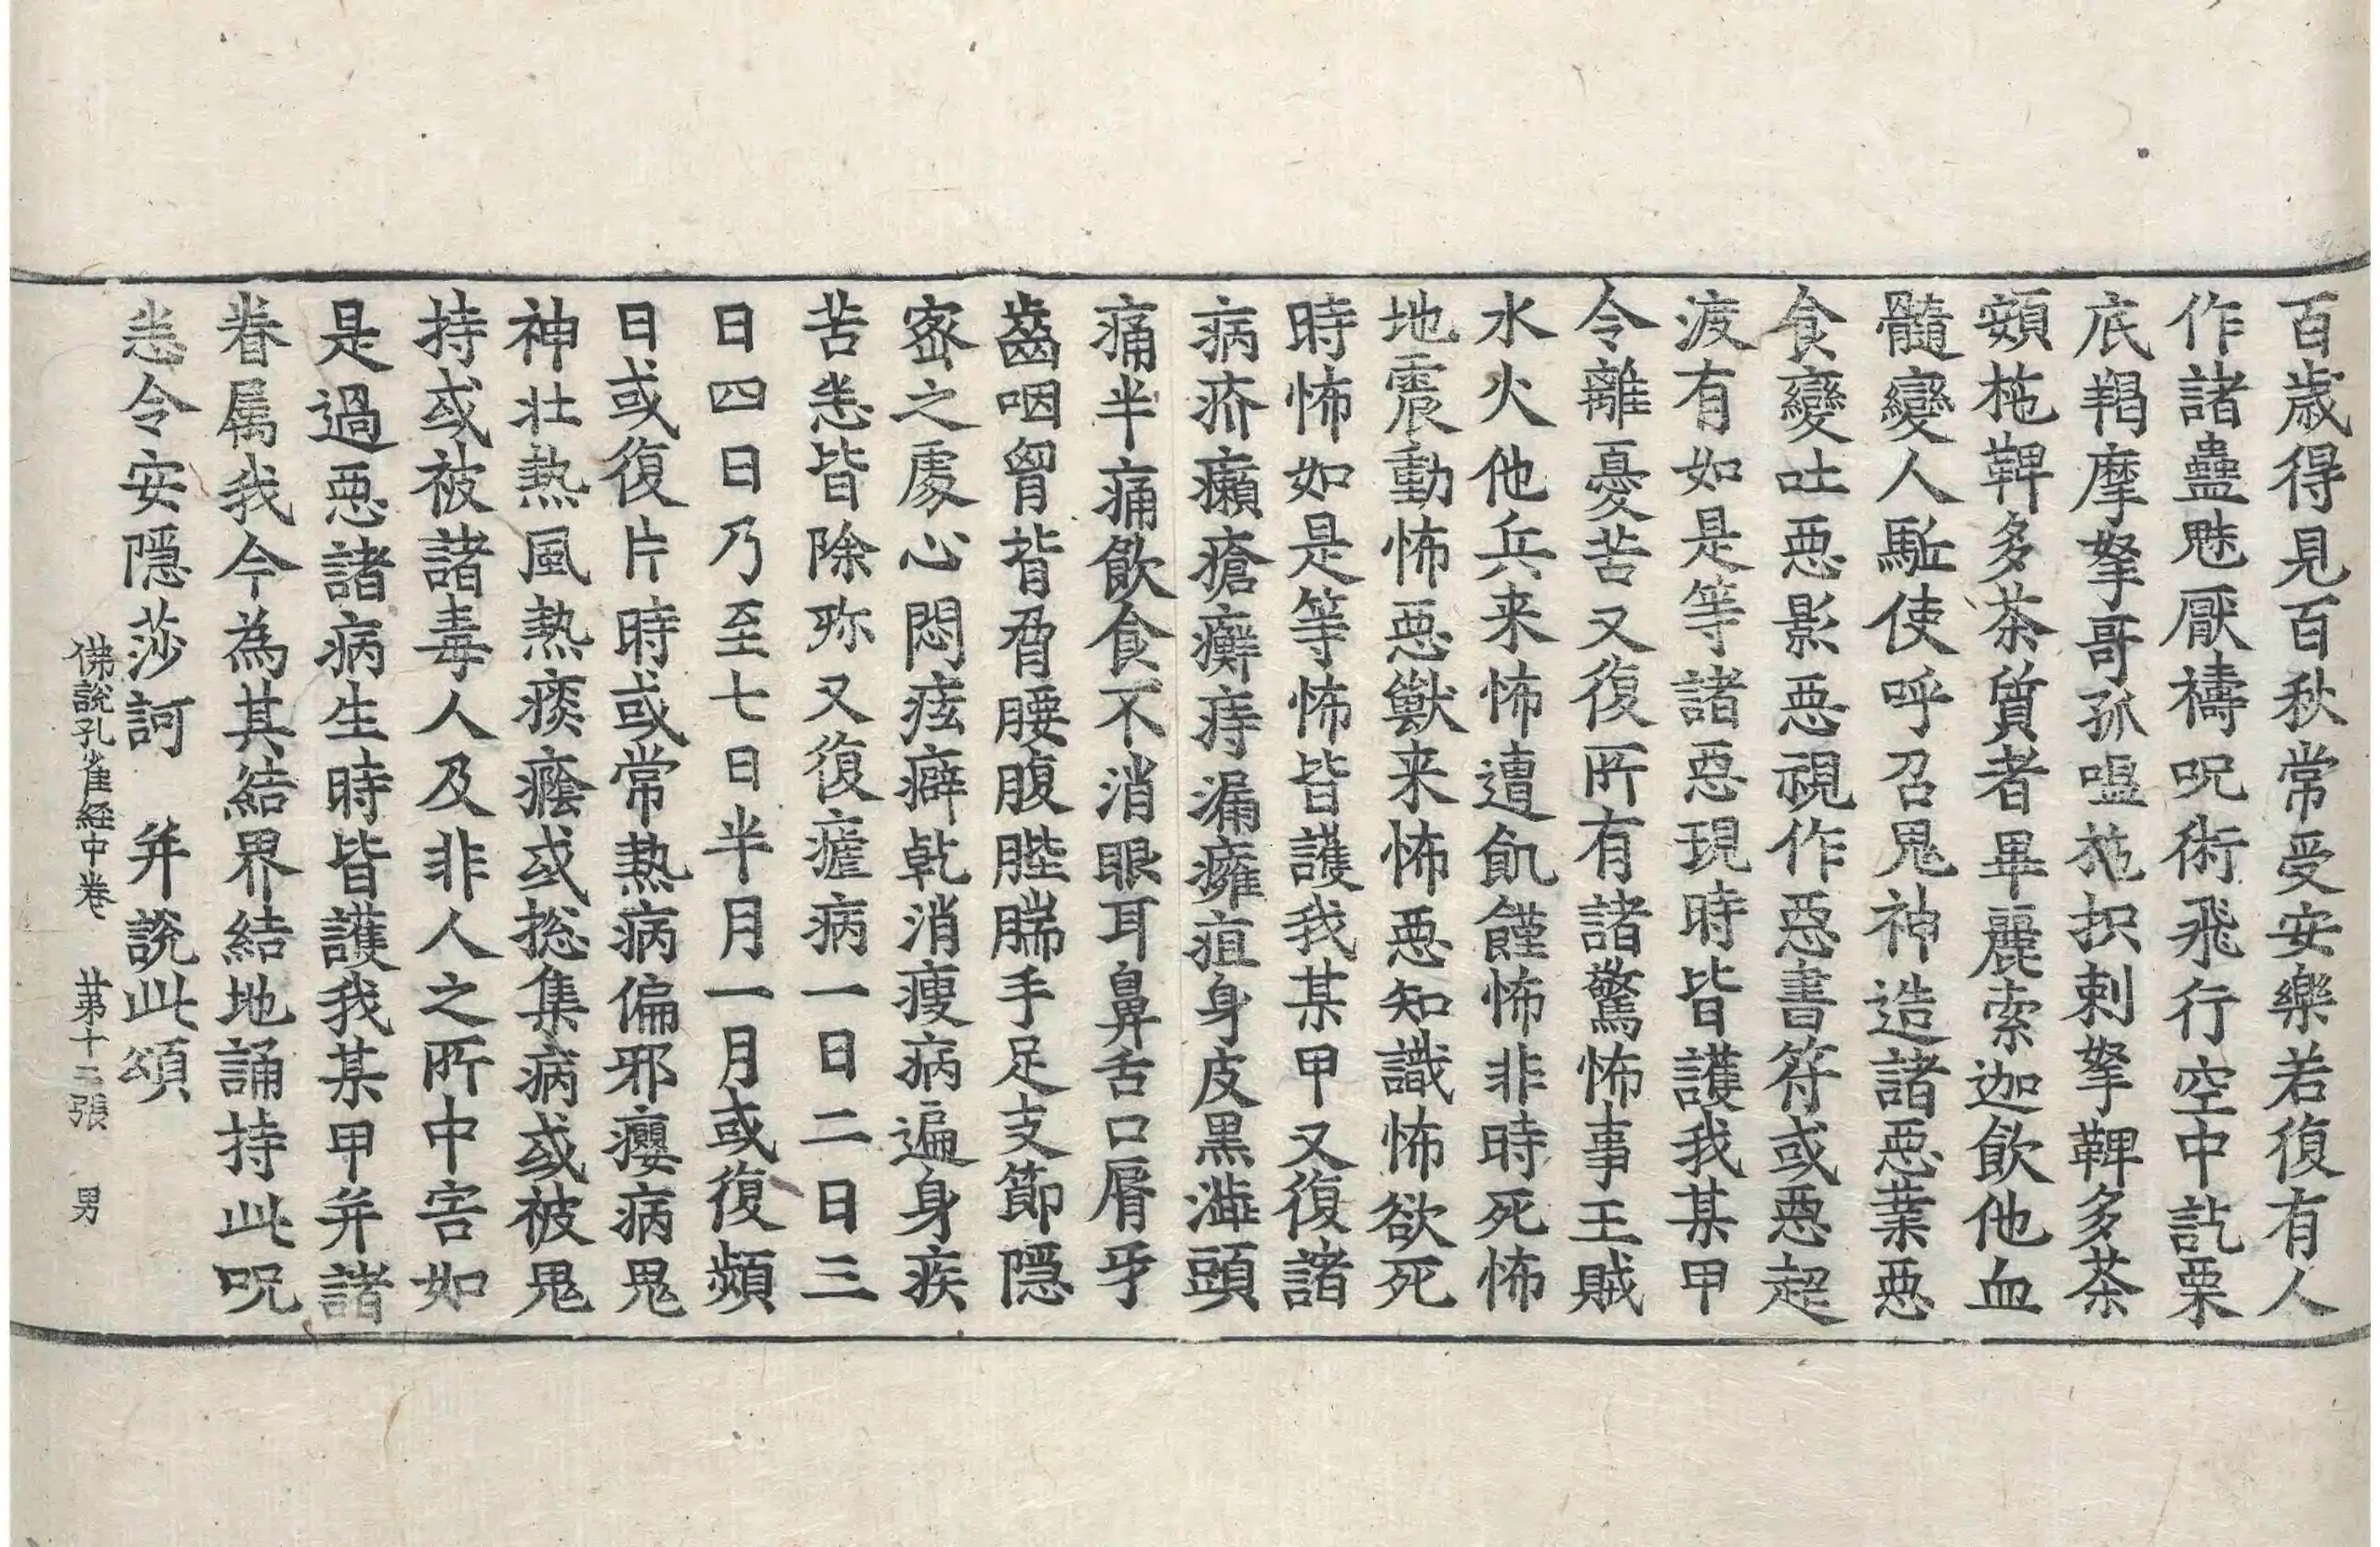 百歲得見百秋常受安樂若復有人
作諸蠱魅厭禱呪術飛行空中訖栗
底羯摩拏哥孤嗢𤙖枳剌拏鞞多茶
頞柂鞞多茶質者畢麗索迦飲他血
髓變人駈使呼召鬼神造諸惡業惡
食變吐惡影惡視作惡書符或惡趍
渡有如是等諸惡現時皆護我某甲
令離憂苦又復所有諸驚怖事王賊
水火他兵来怖遭飢饉怖非時死怖
地震動怖惡獸来怖惡知識怖欲死
時怖如是等怖皆護我某甲又復諸
病疥癩瘡癬痔漏癰疽身皮黑澁頭
痛半痛飲食不消眼耳鼻舌口脣牙
齒咽胷背脅腰腹䏶腨手足支節隱
密之處心悶痃癖乾消瘦病遍身疾
苦悉皆除殄又復瘧病一日二日三
日四日乃至七日半月一月或復頻
日或復片時或常熱病偏邪癭病鬼
神壯熱風熱痰癊或揔集病或被鬼
持或被諸毒人及非人之所中害如
是過惡諸病生時皆護我某甲并諸
眷属我今為其結界結地誦持此呪
悉令安隱莎訶　并說此頌
佛說孔雀経中卷　苐十二張　男